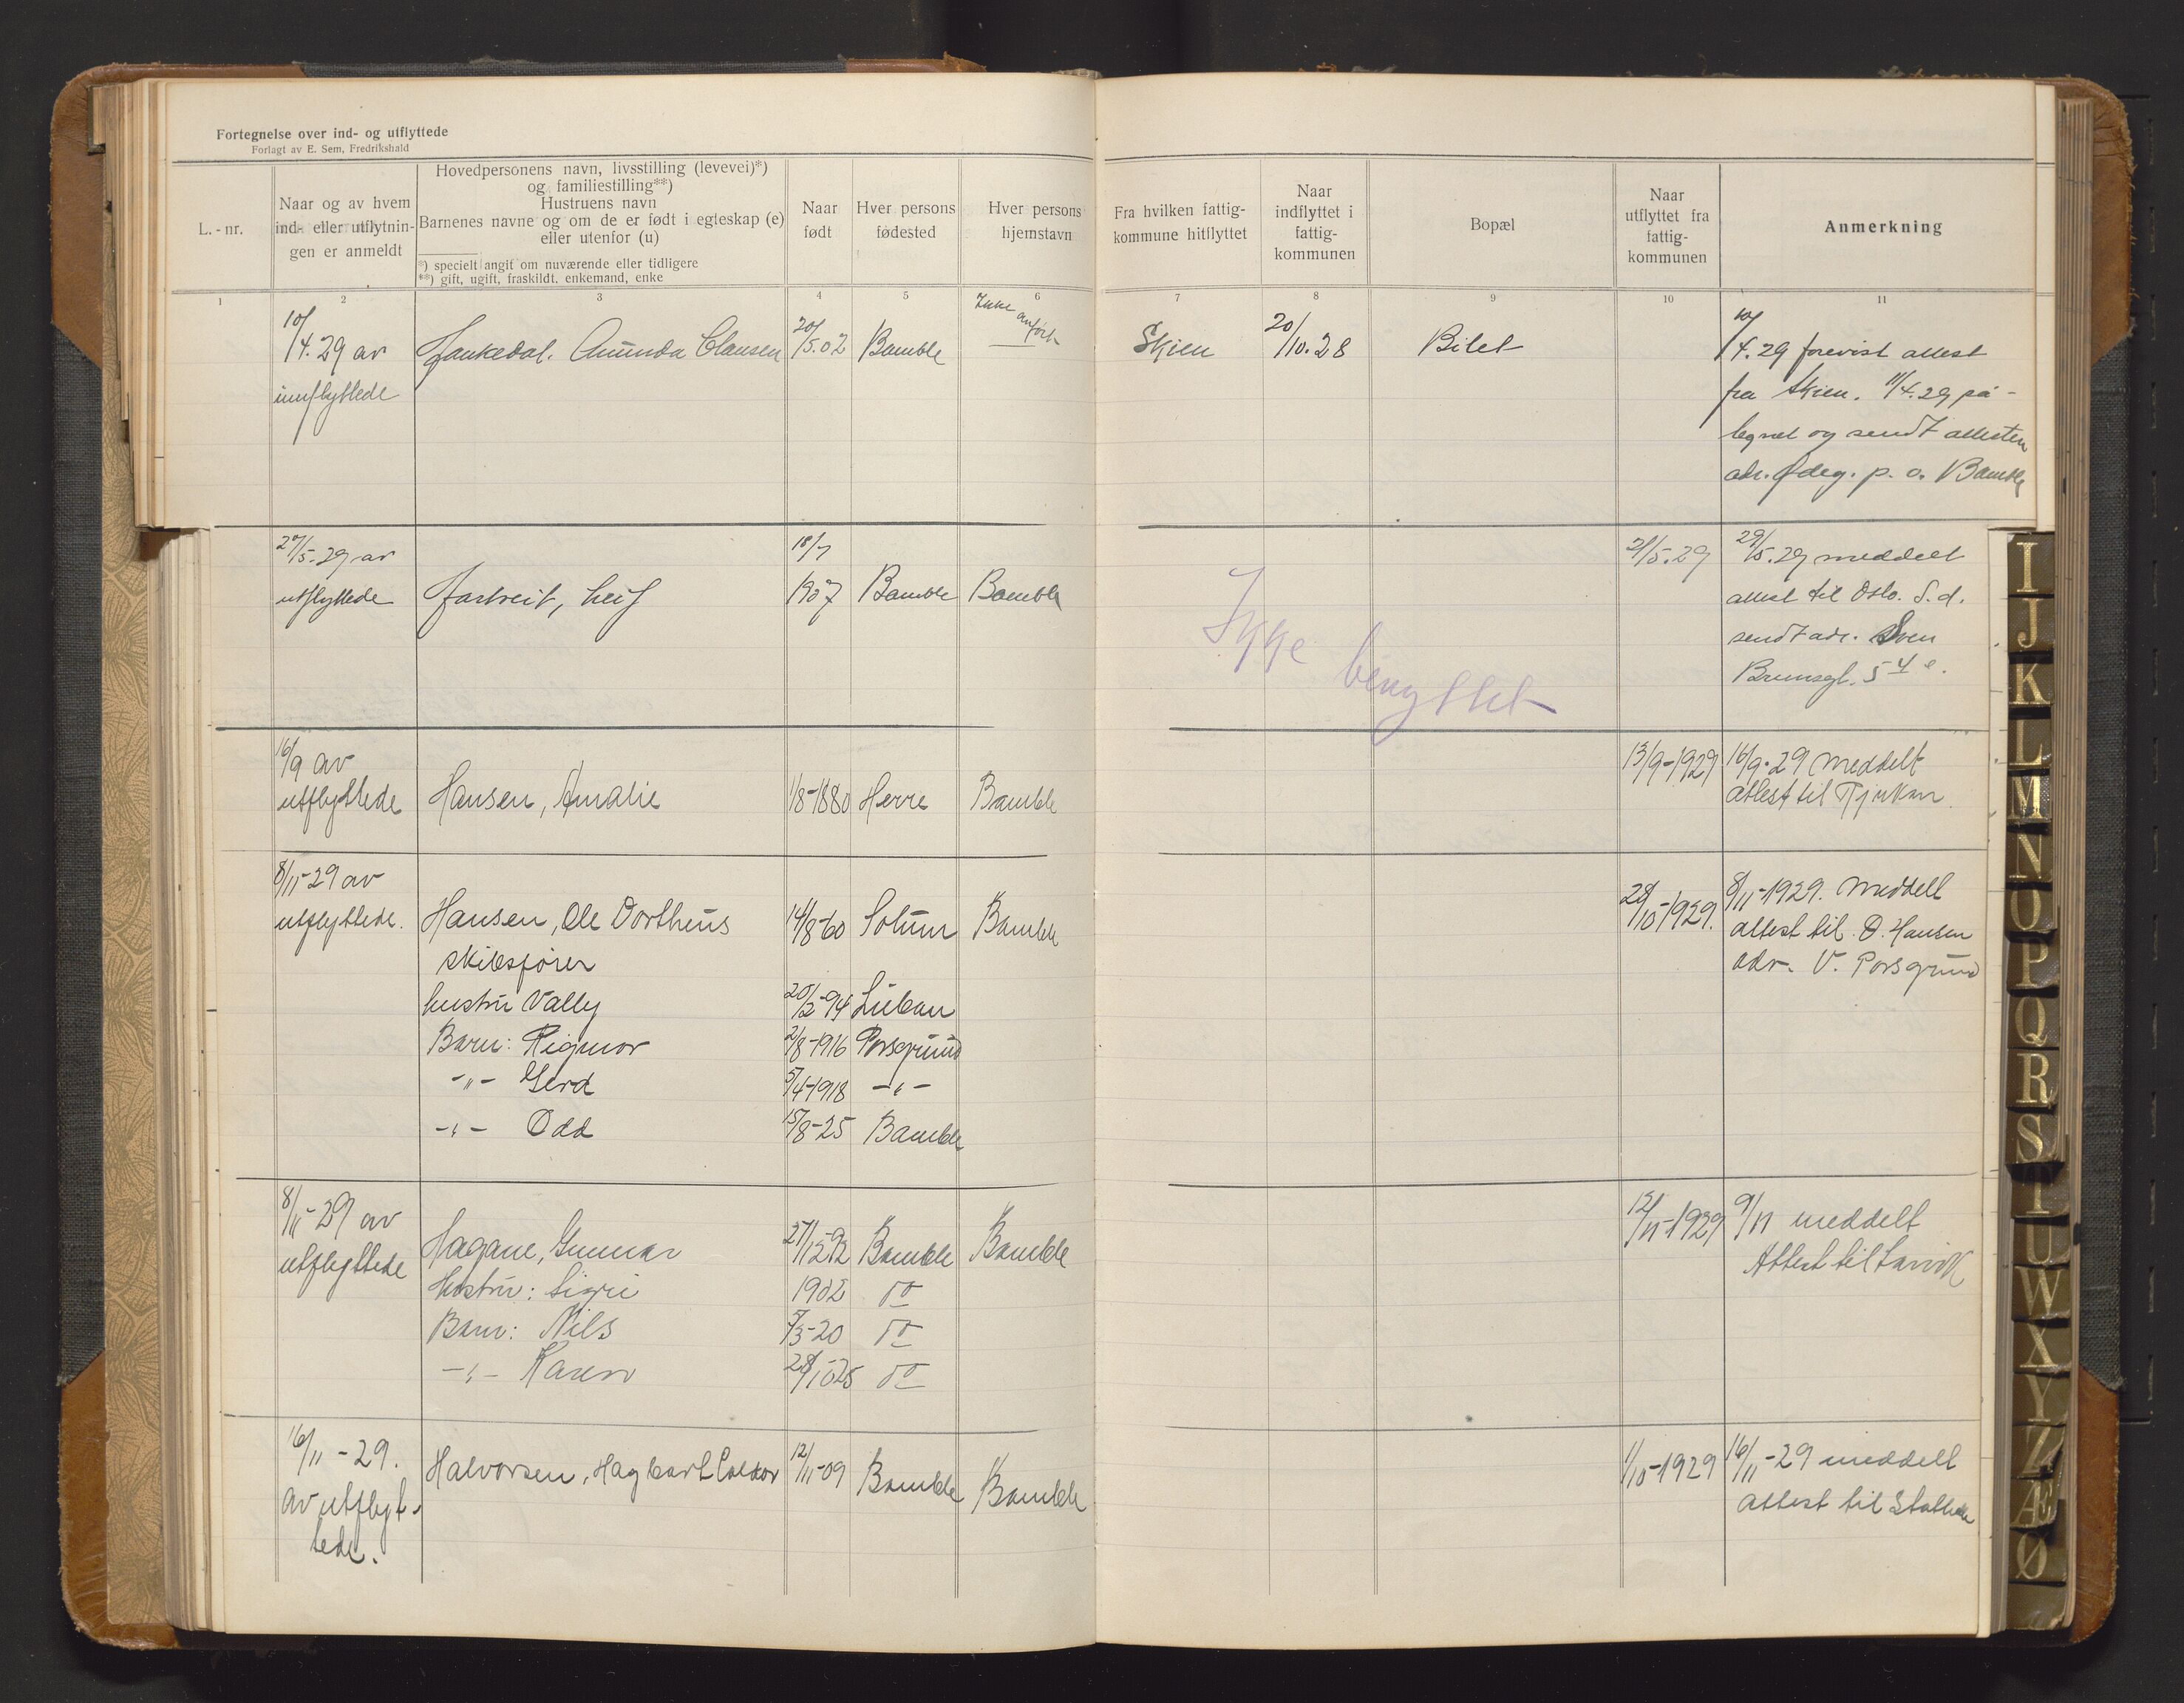 Fortegnelse over ind- og utflyttede
Forlagt av E. Sem, Fredrikshald
L. - nr.
Naar og av hvem
ind- eller utflytnin-
gen er anmeldt
Hovedpersonens navn, livsstilling (levevei)*)
og familiestilling**)
Hustruens navn
Barnenes navne og om de er født i egteskap (e)
eller utenfor (u)
*) specielt angit om nuværende eller tidligere
**) gift, ugift, fraskildt, enkemand, enke
Naar
født
Hver persons
fødested
Hver persons
hjemstavn
Fra hvilken fattig-
kommune hitflyttet
Naar
indflyttet i
fattig-
kommunen
Bopæl
Naar
utflyttet fra
fattig-
kommunen
Anmerkning
1 2 3 4 5 6 7 8 9 10 11
10/4. 29 av
innflyttede
Amunda Clausen
20/5.02
Bamble
Ikke anført
Skien
20/10.28
10/4.29 forevist attest
fra Skien. 11/4.29 på-
tegnet og sendt attesten
adr. Ødeg. p. o. Bamble
27/5.29 av
utflyttede
Leif
18/7
1907
Bamble
Bamble
Ikke benyttet
29/5.29 meddelt
attest til Oslo. S.d.
sendt adr. Sven
Brunsgt. 5 4 e.
16/9 av
utflyttede
Hansen, Amalie
1/8-1880
Herre
Bamble
13/9-1929
16/9-29 meddelt
attest til Rjukan.
8/11-29 av
utflyttede.
Hansen, Ole Dortheus
skibsfører
hustru Vally
Barn: Rigmor
-"- Gerd
-"- Odd
14/8-60 Solum Bamble
20/2-94 Libau
2/8-1916 Porsgrund
5/4-1918 -"-
15/8-25 Bamble
28/10-1929.
8/11-1929. meddelt
attest til O. Hansen
adr. V. Porsgrund
8/11-29 av
utflyttede
Hagane, Gunnar
Hustru: Sigri
Barn: Nils
-"- Karen
27/12 92 Bamble Bamble
1902 do
7/3-20 do
28/10 25 do
12/11-1929
9/11 meddelt
Attest til Larvik
16/11-29.
av utflyt-
tede.
Halvorsen, Hagbart
12/11-09
Bamble
Bamble
1/10-1929
16/11-29 meddelt
attest til Stathelle
I
J
K
L
M
N
O
P
Q
R
S
T
U
W
X
Y
Z
Æ
Ø